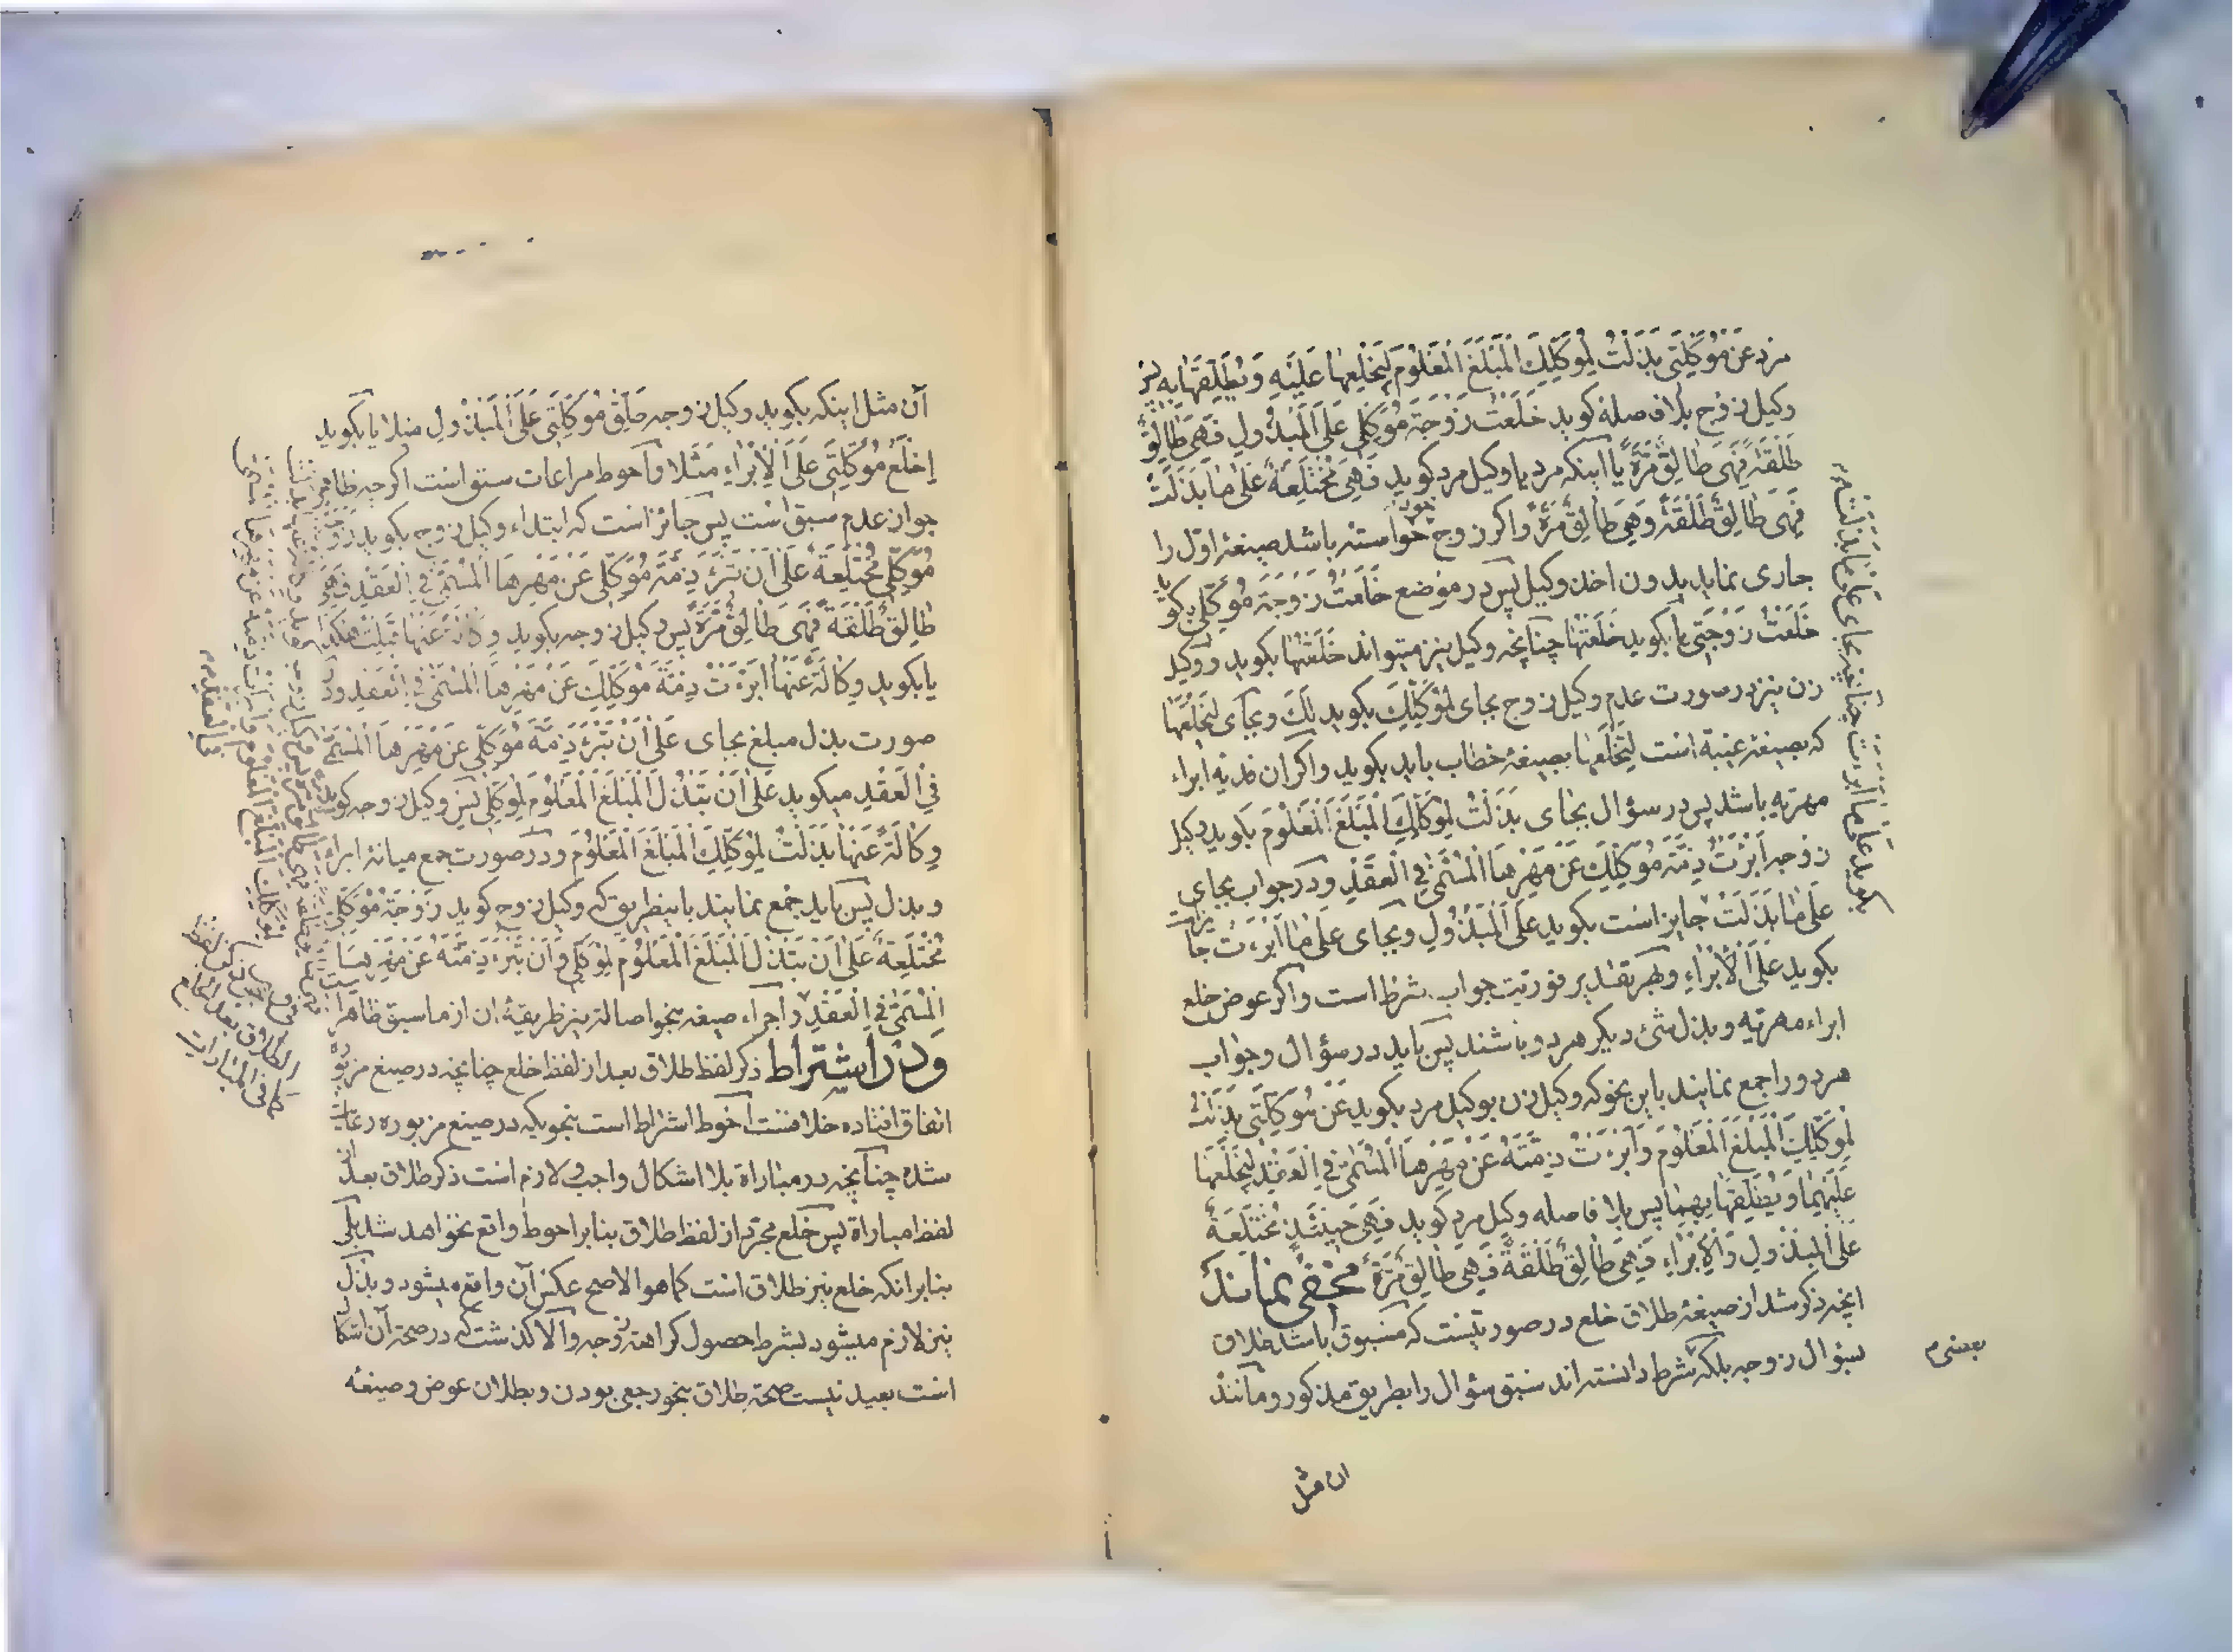 مرد عَنْ مُوَكِّلَتِي بَذَلْتُ لِمُوَكِّلِكَ الْمَبْلَغَ الْمَعْلُومَ لِيَخْلَعَهَا عَلَيْهِ وَيُطَلِّقَهَا بِهِ پس
وکیل زوج بلافاصله کوید خَلَعْتُ زَوْجَةَ مُوَكِّلِي عَلَى الْمَبْذُولِ فَهِيَ طَالِقٌ
طَلْقَةً فَهِيَ طَالِقٌ مَرَّةً یا اینکه مرد یا وکیل مرد کوید فَهِيَ مُخْتَلِعَةٌ عَلَى مَا بَذَلَتْ
فَهِيَ طَالِقٌ طَلْقَةً وَهِيَ طَالِقٌ مَرَّةً واکر زوج خود خواسته باشد صیغهٔ اول را
جاری نماید بدون اخذ وکیل پس در موضع خَلَعْتُ زَوْجَةَ مُوَكِّلِي بکوید
خَلَعْتُ زَوْجَتِي یا بکوید خَلَعْتُهَا چنانچه وکیل نیز میتواند خَلَعْتُهَا بکوید ووکیل
زن نیز در صورت عدم وکیل زوج بجای لِمُوَكِّلِكَ بکوید لَكَ وبجای لِيَخْلَعَهَا
که بصیغهٔ غیبة است لِتَخْلَعَهَا بصیغهٔ خطاب باید بکوید واکر ان فدیه ابراء
مهریه باشد پس در سؤال بجای بَذَلْتُ لِمُوَكِّلِكَ الْمَبْلَغَ الْمَعْلُومَ بکوید وکیل
زوجه اَبْرَئْتُ ذِمَّةَ مُوَكِّلِكَ عَنْ مَهْرِهَا الْمُسَمَّى فِي الْعَقْدِ ودر جواب بجای
عَلَى مَا بَذَلَتْ جایز است بکوید عَلَى الْمَبْذُولِ وبجای عَلَى مَا اَبْرَئَتْ جایز است
بکوید عَلَى الْاِبْرَاءِ وبهر تقدیر فوریت جواب شرط است واکر عوض خلع
ابراء مهریه وبذل شئ دیکر هر دو باشند پس باید در سؤال وجواب
هر دو را جمع نمایند باین نحو که وکیل زن بوکیل مرد بکوید عَنْ مُوَكِّلَتِي بَذَلْتُ
لِمُوَكِّلِكَ الْمَبْلَغَ الْمَعْلُومَ وَاَبْرَئْتُ ذِمَّتَهُ عَنْ مَهْرِهَا الْمُسَمَّى فِي الْعَقْدِ لِيَخْلَعَهَا
عَلَيْهِمَا وَيُطَلِّقَهَا بِهِمَا پس بلا فاصله وکیل مرد کوید فَهِيَ حِينَئِذٍ مُخْتَلِعَةٌ
عَلَى الْمَبْذُولِ وَالْاِبْرَاءِ فَهِيَ طَالِقٌ طَلْقَةً فَهِيَ طَالِقٌ مَرَّةً مخفی نماند
انچه ذکر شد از صیغهٔ طلاق خلع در صورتیست که مسبوق باشد طلاق
بسؤال زوجه بلکه شرط دانسته اند سبق سؤال را بطریق مذکور ومانند
بعضی م
ان مثل
آن مثل اینکه بکوید وکیل زوجه طَلِّقْ مُوَكِّلَتِي عَلَى الْمَبْذُولِ مثلا یا بکوید
اِخْلَعْ مُوَكِّلَتِي عَلَى الْاِبْرَاءِ مثلا واحوط مراعات سبق است اکر چه ظاهر
جواز عدم سبق است پس جائز است که ابتداء وکیل زوج بکوید زَوْجَةُ
مُوَكِّلِي مُخْتَلِعَةٌ عَلَى اَنْ تُبْرِءَ ذِمَّةَ مُوَكِّلِي عَنْ مَهْرِهَا الْمُسَمَّى فِي الْعَقْدِ فَهِيَ
طَالِقٌ طَلْقَةً فَهِيَ طَالِقٌ مَرَّةً پس وکیل زوجه بکوید وِكَالَةً عَنْهَا قَبِلْتُ هَكَذَا
یا بکوید وِكَالَةً عَنْهَا اَبْرَئْتُ ذِمَّةَ مُوَكِّلِكَ عَنْ مَهْرِهَا الْمُسَمَّى فِي الْعَقْدِ ودر
صورت بذل مبلغ بجای عَلَى اَنْ تُبْرِءَ ذِمَّةَ مُوَكِّلِي عَنْ مَهْرِهَا الْمُسَمَّى
فِي الْعَقْدِ میکوید عَلَى اَنْ تَبْذُلَ الْمَبْلَغَ الْمَعْلُومَ لِمُوَكِّلِي پس وکیل زوجه کوید
وِكَالَةً عَنْهَا بَذَلْتُ لِمُوَكِّلِكَ الْمَبْلَغَ الْمَعْلُومَ ودر صورت جمع میانهٔ ابراء
وبذل پس باید جمع نمایند باینطریق که وکیل زوج کوید زَوْجَةُ مُوَكِّلِي
مُخْتَلِعَةٌ عَلَى اَنْ تَبْذُلَ الْمَبْلَغَ الْمَعْلُومَ لِمُوَكِّلِي وَاَنْ تُبْرِءَ ذِمَّتَهُ عَنْ مَهْرِهَا
الْمُسَمَّى فِي الْعَقْدِ واجراء صیغه بنحو اصالة نیز طریقهٔ ان از ما سبق ظاهر است
ودر اشتراط ذکر لفظ طلاق بعد از لفظ خلع چنانچه در صیغ مزبوره
اتفاق افتاده خلافست احوط اشتراط است بنحویکه در صیغ مزبوره رعایت
شده چنانچه در مباراة بلا اشکال واجب ولازم است ذکر طلاق بعد از
لفظ مباراة پس خلع مجرد از لفظ طلاق بنابر احوط واقع نخواهد شد بلکه
بنابر انکه خلع نیز طلاق است کما هو الاصح عکس آن واقع میشود وبذل
نیز لازم میشود بشرط حصول کراهة زوجه والا کذشت که در صحة آن اشکال
است بعید نیست صحة طلاق بنحو رجعی بودن وبطلان عوض وصیغهٔ